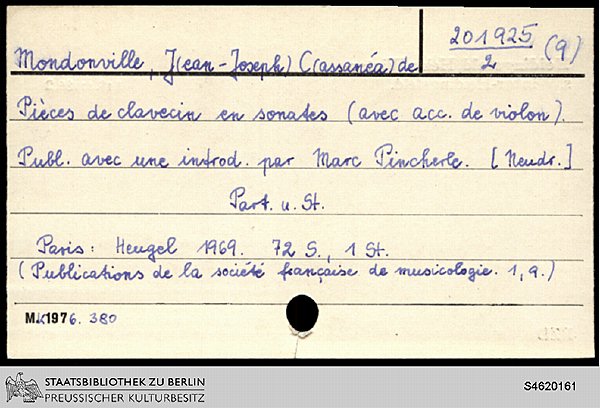 201925
2
(9)
Mondonville, J(ean-Joseph) C(assanéa) de
Pièces de clavecin en sonates (avec acc. de violon).
Publ. avec une introd. par Marc Pincherle. [Neudr.]
Part. u. St.
Paris: Heugel 1969. 72 S., 1 St.
(Publications de la société française de musicologie. 1,9.)
1976. 380
STAATSBIBLIOTHEK ZU BERLIN
PREUSSISCHER KULTURBESITZ
S4620161